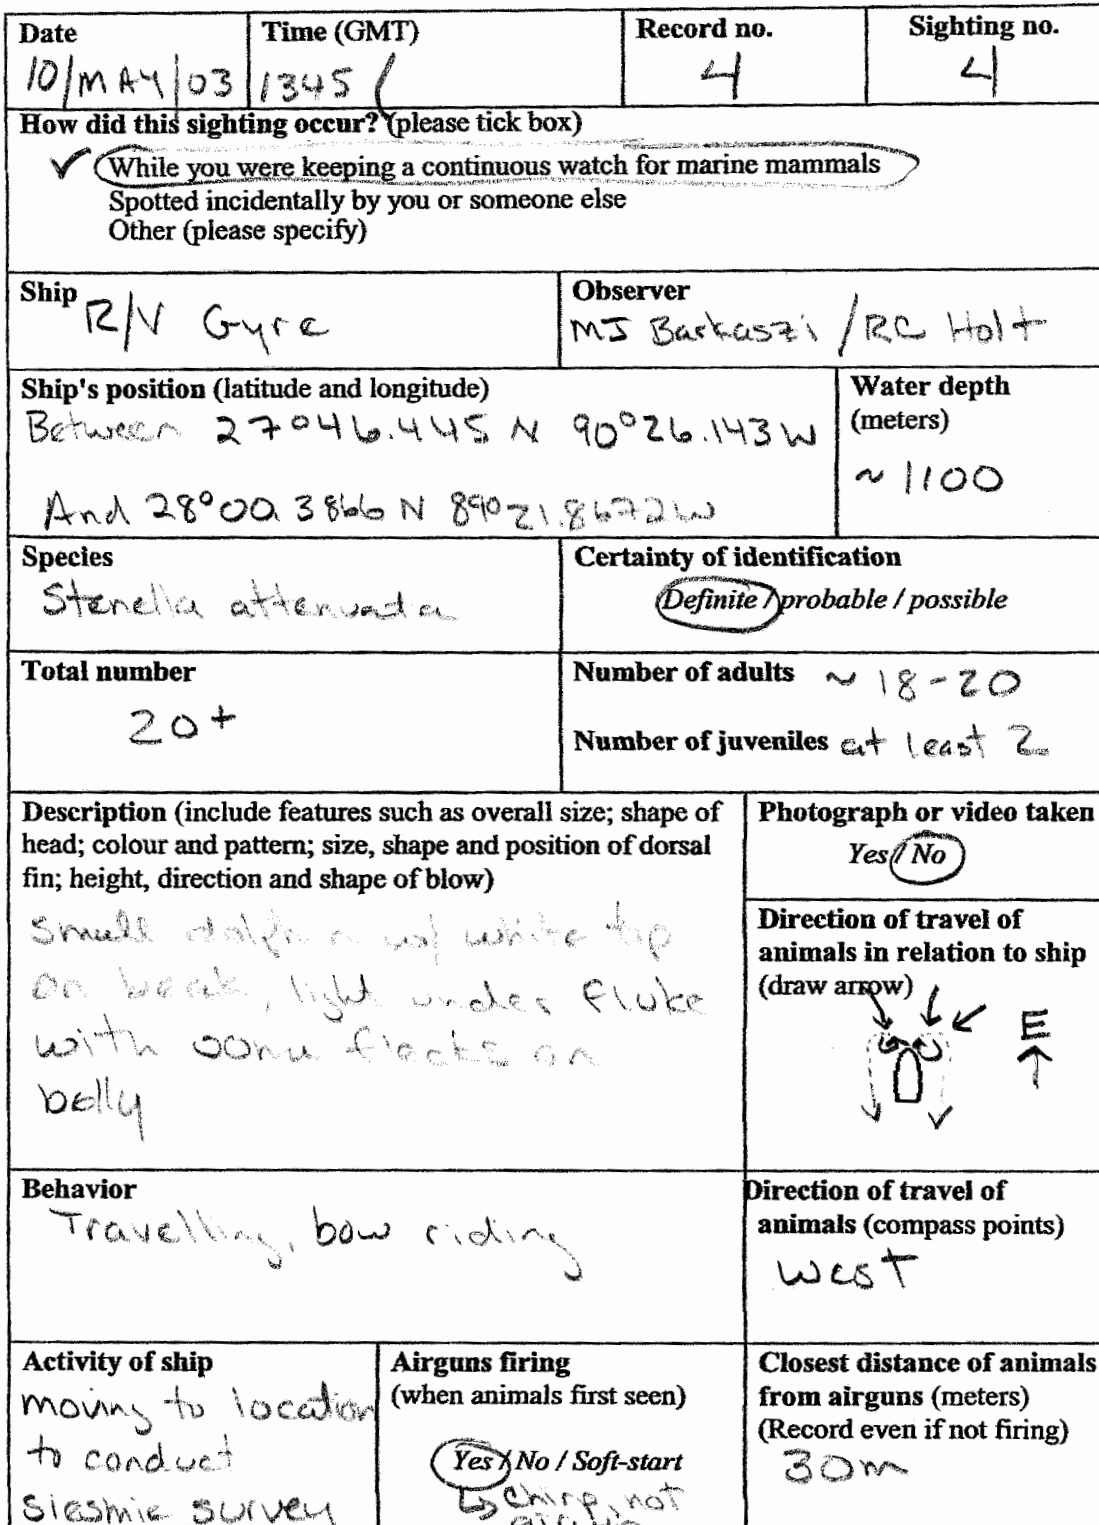 Date Time (GMT) Record no. Sighting no.
10/MAY/03 1345 4 4
How did this sighting occur? (please tick box)
✓ While you were keeping a continuous watch for marine mammals
Spotted incidentally by you or someone else
Other (please specify)
Ship R/V Gyre
Observer
MJ Barkaszi / RC Holt
Ship's position (latitude and longitude)
Between 27°46.445 N 90°26.143W
And 28°00.3866 N 89°21.8672W
Water depth
(meters)
~ 1100
Species
Stenella attenuada
Certainty of identification
Definite / probable / possible
Total number
20+
Number of adults ~ 18-20
Number of juveniles at least 2
Description (include features such as overall size; shape of
head; colour and pattern; size, shape and position of dorsal
fin; height, direction and shape of blow)
Small dolphin w/ white tip
on beak, light under fluke
with flecks on
belly
Photograph or video taken
Yes / No
Direction of travel of
animals in relation to ship
(draw arrow)
E
Behavior
Travelling, bow riding
Direction of travel of
animals (compass points)
West
Activity of ship
moving to location
to conduct
siesmic survey
Airguns firing
(when animals first seen)
Yes / No / Soft-start
chirp, not
airgun
Closest distance of animals
from airguns (meters)
(Record even if not firing)
30m